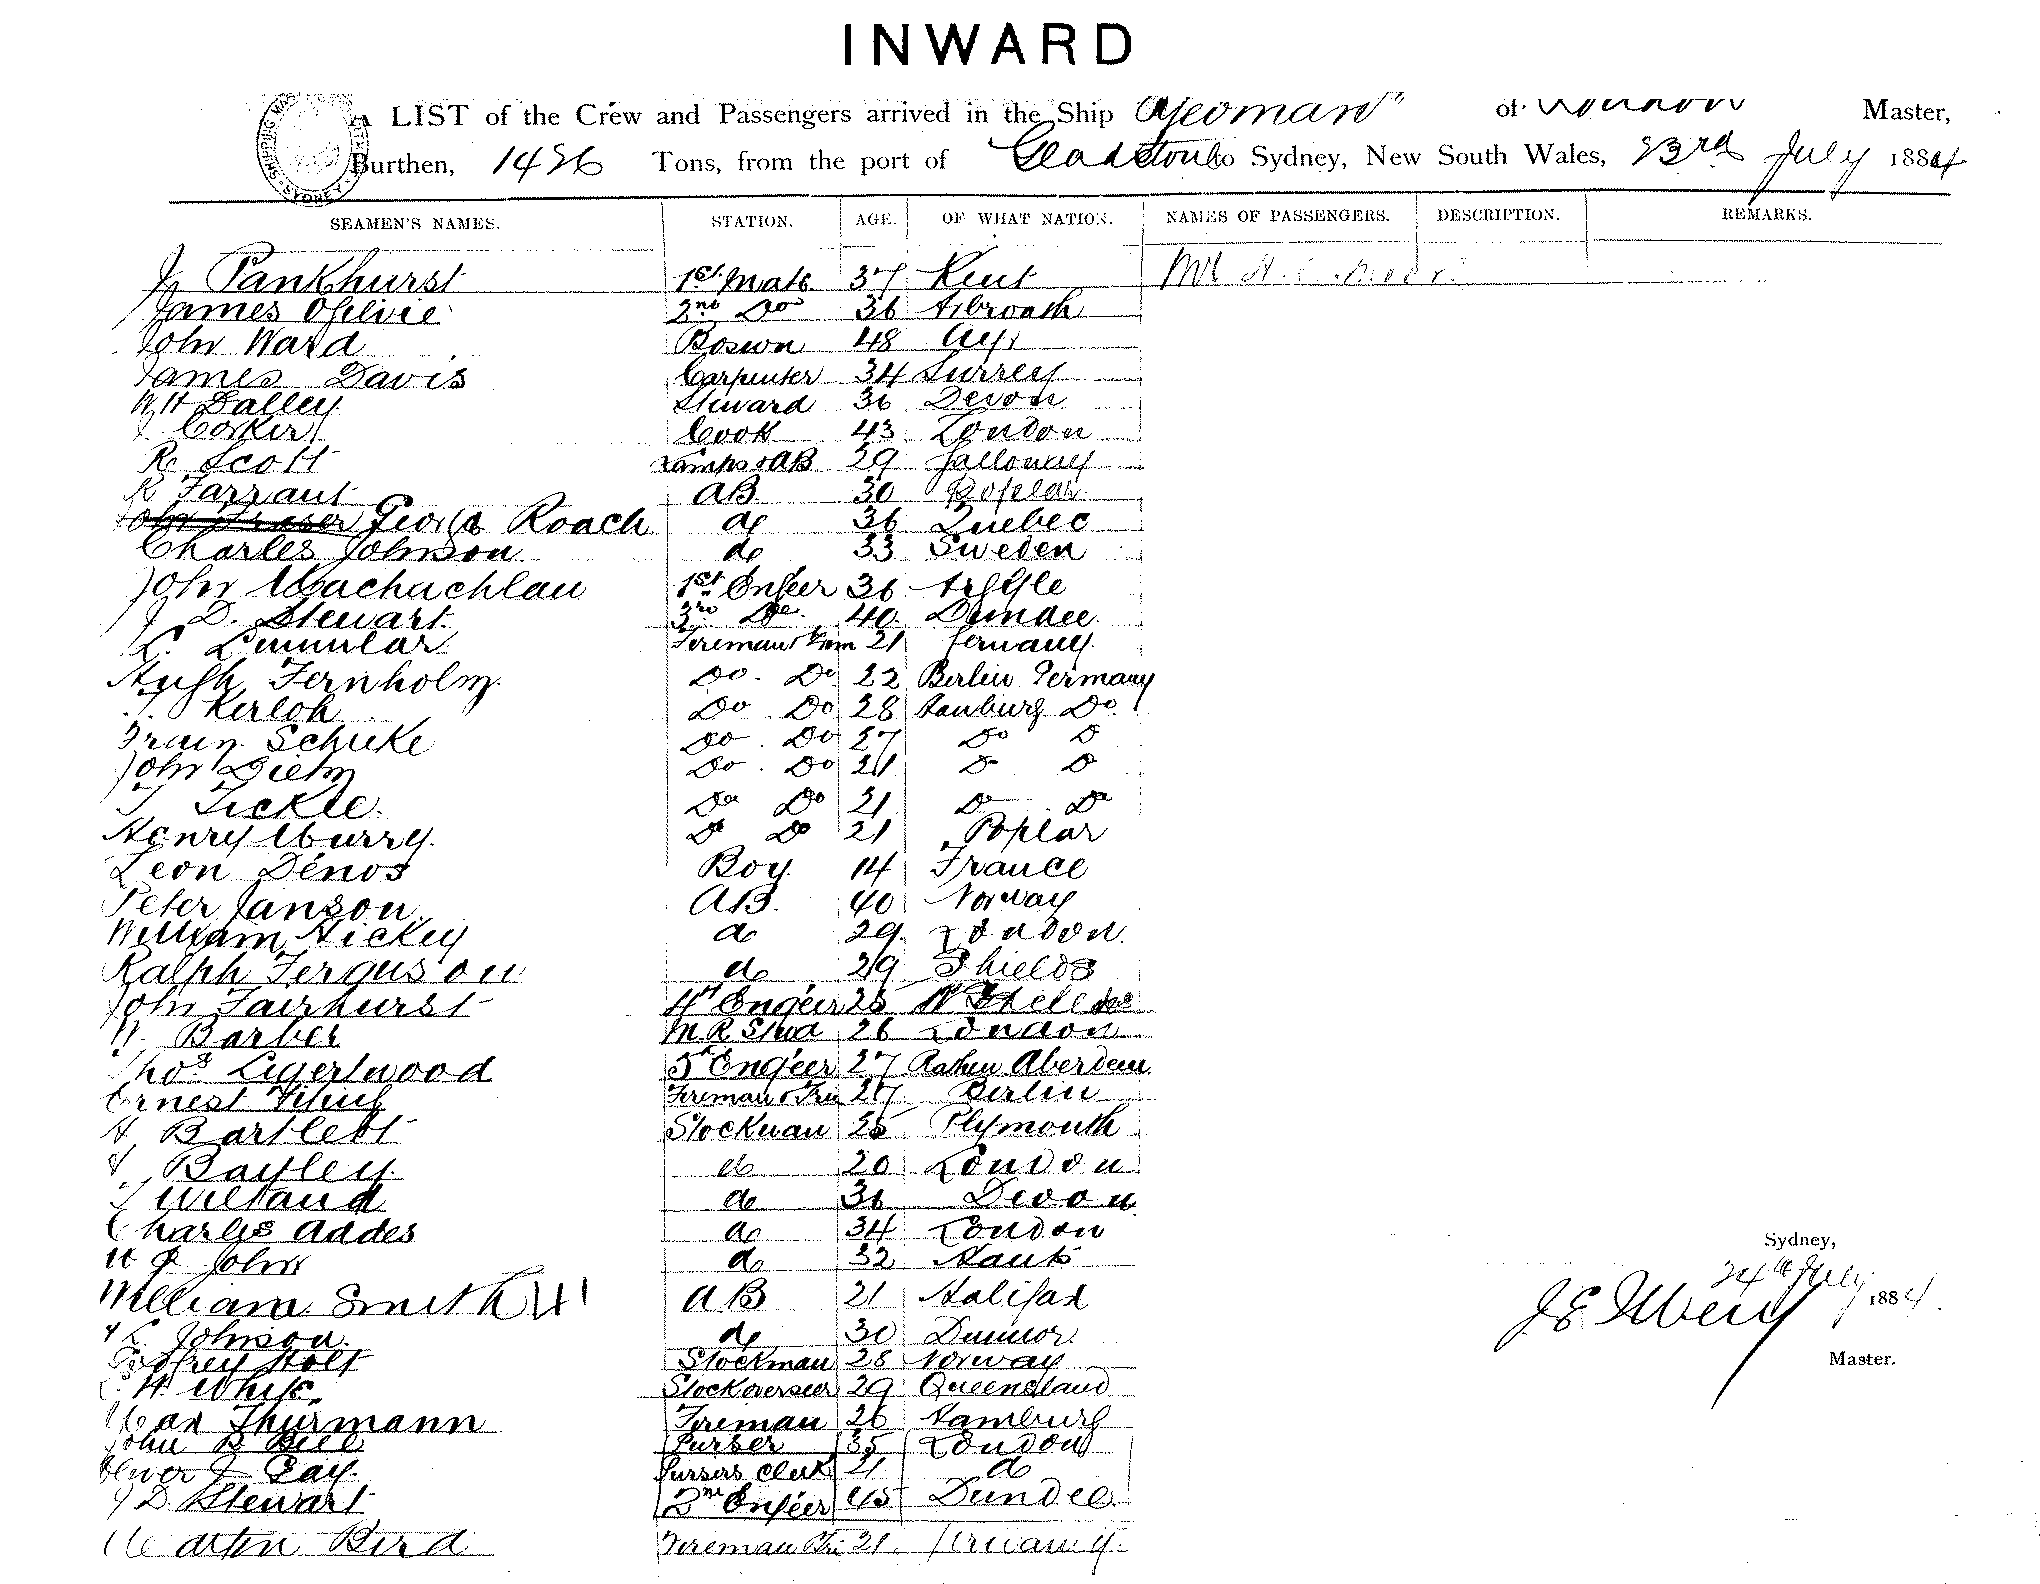 INWARD
A LIST of the Crew and Passengers arrived in the Ship "Yeoman" of London Master,
Burthen, 1496 Tons, from the port of Gladstone to Sydney, New South Wales, 23rd July 1884
SEAMEN'S NAMES. STATION. AGE. OF WHAT NATION. NAMES OF PASSENGERS. DESCRIPTION. REMARKS.
J Pankhurst 1st Mate 37 Kent Mr
James Ogilvie 2nd Do 36 Arbroath
John Ward Boswn 48 Ayr
James Davis Carpenter 34 Surrey
W H Dalley Steward 36 Devon
J Corker Cook 43 London
R Scott Lamps & AB 29 Galloway
R Farrant AB 30 Poplar
John Fraser George Roach do 36 Quebec
Charles Johnson do 33 Sweden
John Machachlan 1st Engeer 36 Argyle
J D. Stewart 3rd Do 40 Dundee
Fireman & Trim 21 Germany
Hugh Fernholm Do. Do 22 Berlin Germany
Kerloh Do. Do 28 Hamburg Do
Schieke Do. Do 27 Do D
John Diehm Do. Do 21 D D
T Tickle Do Do 21 Do Do
Henry Murry D Do 21 Poplar
Leon Denos Boy 14 France
Peter Janson AB. 40 Norway
William Hickey do 29 London
Ralph Ferguson do 29 Shields
John Fairhurst 4th Engeer 25 N Shields
W. Barber M.R. Stwd 26 London
Thos Ligertwood 5th Engeer 27 Aberdeen
Ernest Fireman & Tri 27 Berlin
H Bartlett Stockman 25 Plymouth
Bayley do 20 London
Wieland do 36 Devon
Charles Addes do 34 London
H J John do 32 Hants
William Smith AB 21 Halifax
Johnson do 30
Godfrey Holt Stockman 28 Norway
H White Stock overseer 29 Queensland
Max Thurmann Fireman 26 Hamburg
John B Bell Purser 35 London
Oliver J Day Pursers Clerk 21 do
J D Stewart 2nd Engeer 45 Dundee
Martin Bird Fireman Tri 21. Germany
Sydney,
24th July 1884.
Master.